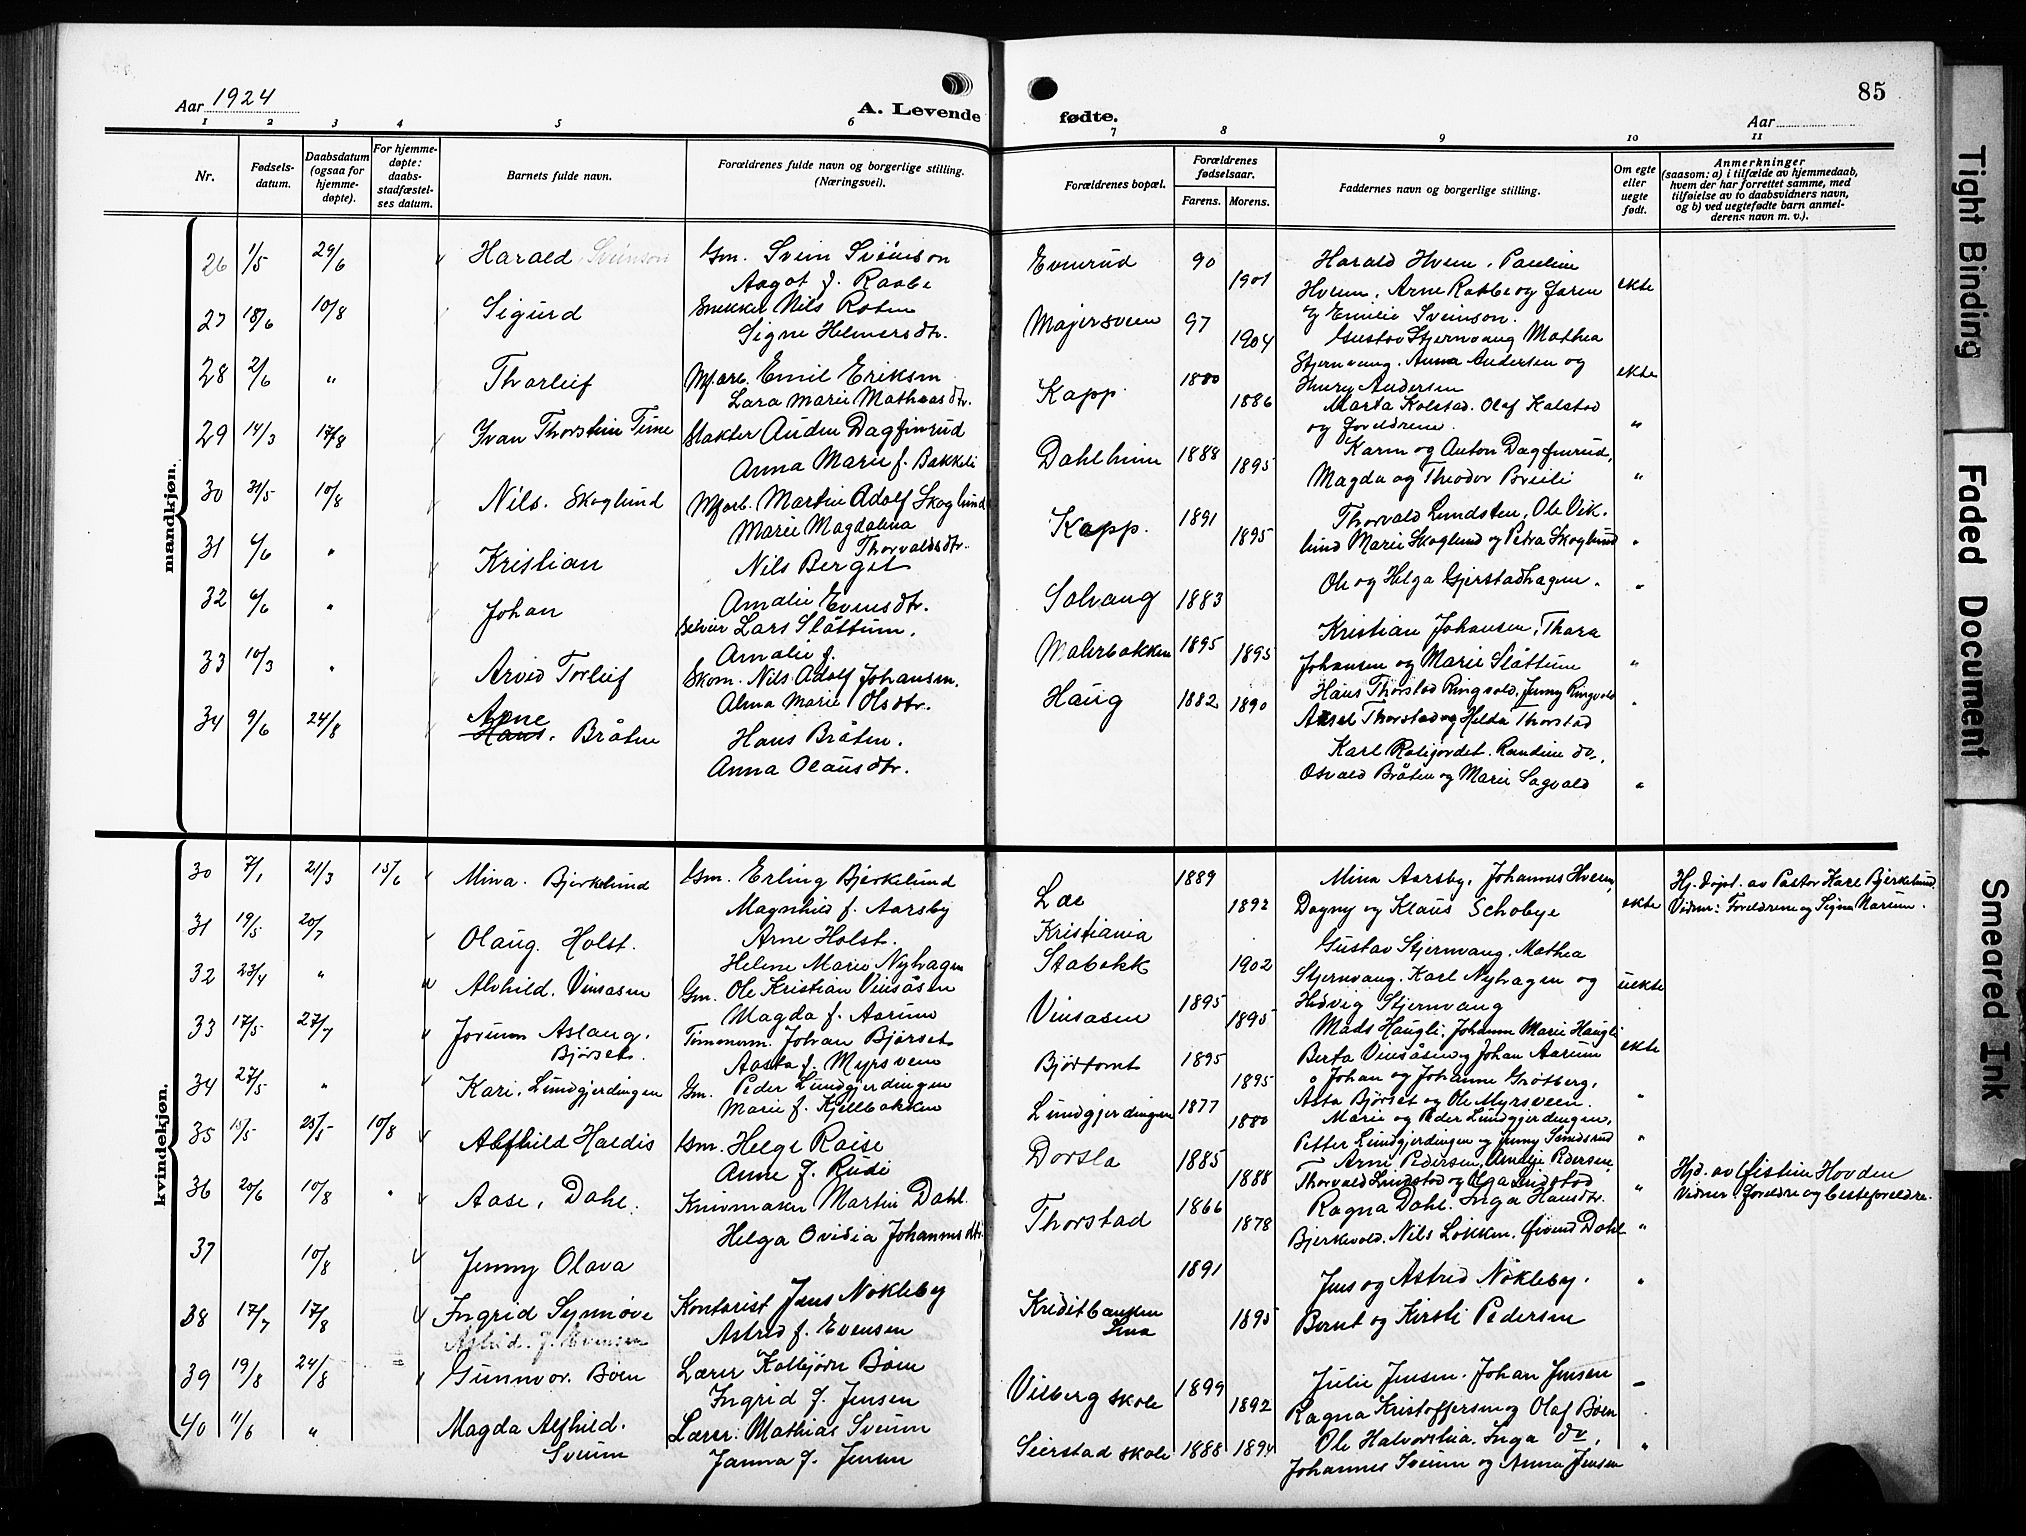 Aar 1924
A. Levende
fødte.
85
Aar
1 2 3 4 5 6 7 8 9 10 11
Nr.
Fødsels-
datum.
Daabsdatum
(ogsaa for
hjemme-
døpte).
For hjemme-
døpte:
daabs-
stadfæstel-
ses datum.
Barnets fulde navn.
Forældrenes fulde navn og borgerlige stilling.
(Næringsvei).
Forældrenes bopæl.
Forældrenes
fødselsaar.
Farens. Morens.
Faddernes navn og borgerlige stilling.
Om egte
eller
uegte
født.
Anmerkninger
(saasom: a) i tilfælde av hjemmedaab,
hvem der har forrettet samme, med
tilføielse av to daabsvidners navn,
og b) ved uegtefødte barn anmel-
derens navn m. v.).
mandkjøn.
26 1/5 29/6 Harald Svenson Gm. Svein Svenson
Aagot f. Raabe
Evenrud 90 1901
Harald Hveem, Pauline
Hveem, Arne Raabe og Jaren
og Emilie Svenson.
ekte
27 18/6 10/8 Sigurd Snekker Nils Roten
Signe Helmersdtr.
Majersveen 97 1904
Gustav Stjernvang Mathea
Stjernvang, Anna Andersen og
Henry Andersen
ekte
28 2/6 " Thorleif Mfarb. Emil Eriksen
Lara Marie Matheasdtr.
Kapp 1880 1886
Marta Kolstad. Olaf Kolstad
og foreldrene.
"
29 14/3 17/8 Ivan Thorstein Time Slakter Auden Dagfinrud
Anna Marie f. Bakkeli
Dahlheim 1888 1895
Karen og Anton Dagfinrud,
Magda og Theodor Breili
"
30 31/5 10/8 Nils. Skoglund Mfarb. Martin Adolf Skoglund
Marie Magdalena
Thorvaldsdtr.
Kapp. 1891 1895
Thorvald Lundsten, Ole Vik-
lund Marie Skoglund og Petra Skoglund
"
31 6/6 " Kristian Nils Berget
Amalie Evensdtr.
Solvang 1883
Ole og Helga Gjerstadhagen.
"
32 6/6 " Johan Selveier Lars Slåttum.
Amalie f.
Malerbakken 1895 1895
Kristian Johansen, Thara
Johansen og Marie Slåttum
"
33 10/3 " Arvid Torleif Skom. Nils Adolf Johansen.
Alma Marie Olsdtr.
Haug 1882 1890
Hans Thorstad Ringvold, Jenny Ringvold
Aksel Thorstad og Helda Thorstad
"
34 9/6 24/8 Arne
Hans. Bråten Hans Bråten.
Anna Olausdtr.
Karl Roligordet. Randine do.,
Osvald Bråten og Marie Sagvold
"
kvindekjøn.
30 7/1 21/3 15/6 Mina. Bjerkelund Gm. Erling Bjerkelund
Magnhild f. Aarsby
Lae 1889 1892
Mina Aarsby, Johannes Hveem,
Dagny og Klaus Schobye
ekte
Hj. døpt. av Pastor Karl Bjerkelund.
Vidner: Foreldrene og Signe Narum.
31 19/5 20/7 Olaug. Holst. Arne Holst.
Helene Marie Nyhagen
Kristiania
Stabekk 1902
Gustav Stjernvang, Mathea
Stjernvang. Karl Nyhagen og
Hedvig Stjernvang
uekte
32 23/4 " Alvhild. Vinsåsen Gm. Ole Kristian Vinsåsen
Magda f. Aarum
Vinsasen 1895 1895
Mads Haugli, Johanne Marie Haugli
Berta Vinsåsen og Johan Aarum
ekte
33 17/5 27/7 Jorunn Aslaug.
Bjørset. Tømmerm. Johan Bjørset
Aasta f. Myrsveen
Bjørtomt 1895 1895
Johan og Johanne Grøtberg,
Asta Bjørset og Ole Myrsveen.
"
34 27/5 " Kari. Lundgjerdingen Gm. Peder Lundgjerdingen
Marie f. Kjellbakken
Lundgjerdingen 1877 1880
Marie og Peder Lundgjerdingen,
Petter Lundgjerdingen og Jenny Sandsrud
"
35 15/5 25/5 10/8 Alfhild Haldis Gm. Helge Roise
Anne f. Rudi
Dorsla 1885 1888
Arne Pedersen, Amalie Pedersen,
Thorvald Lindstad og Olga Lindstad
"
Hjd. av Østein Hovden
Vidner foreldre og besteforeldre.
36 20/6 10/8 " Aase, Dahl. Knivmaker Martin Dahl.
Helga Ovidia Johannesdtr.
Thorstad 1866 1878
Ragna Dahl. Inga Hansdtr.
Bjerkevold. Nils Løkken. Øivind Dahl
"
37 10/8 Jenny Olava
38 17/7 17/8 Ingrid Synnøve Kontorist Jens Nøkleby
Astrid f. Evensen
Astrid f. Evensen
Kreditbanken
Lena
1891 1895
Jens og Astrid Nøkleby.
Bernt og Kirsti Pedersen
"
39 19/8 24/8 Gunnvor. Böen Lærer Kolbjørn Böen
Ingrid f. Jensen
Vilberg skole 1899 1892
Julie Jensen. Johan Jensen
Ragna Kristoffersen og Olaf Böen
40 11/6 " Magda Alfhild.
Sveum Lærer. Mathias Sveum
Janna f. Jensen
Seierstad skole 1888 1894
Ole Halvorslia. Inga do,
Johannes Sveum og Anna Jensen
"
Tight Binding
Faded Document
Smeared Ink